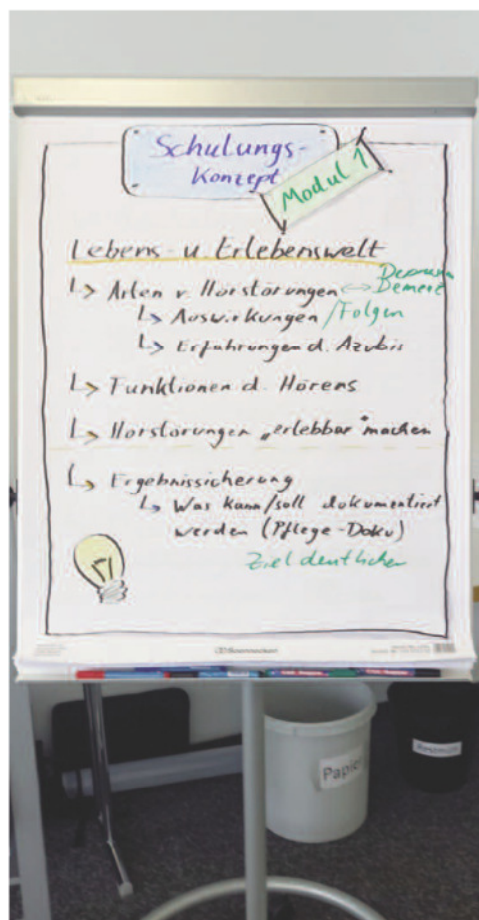 Schulungs-
Konzept
Modul 1
Lebens- u. Erlebenswelt
↳ Arten v. Hörstörungen ↔
↳ Auswirkungen / Folgen
↳ Erfahrungen d. Azubis
↳ Funktionen d. Hörens
↳ Hörstörungen „erlebbar" machen
↳ Ergebnissicherung
↳ Was kann/soll dokumentiert
werden (Pflege-Doku)
Ziel deutlicher
Papier
Restmüll